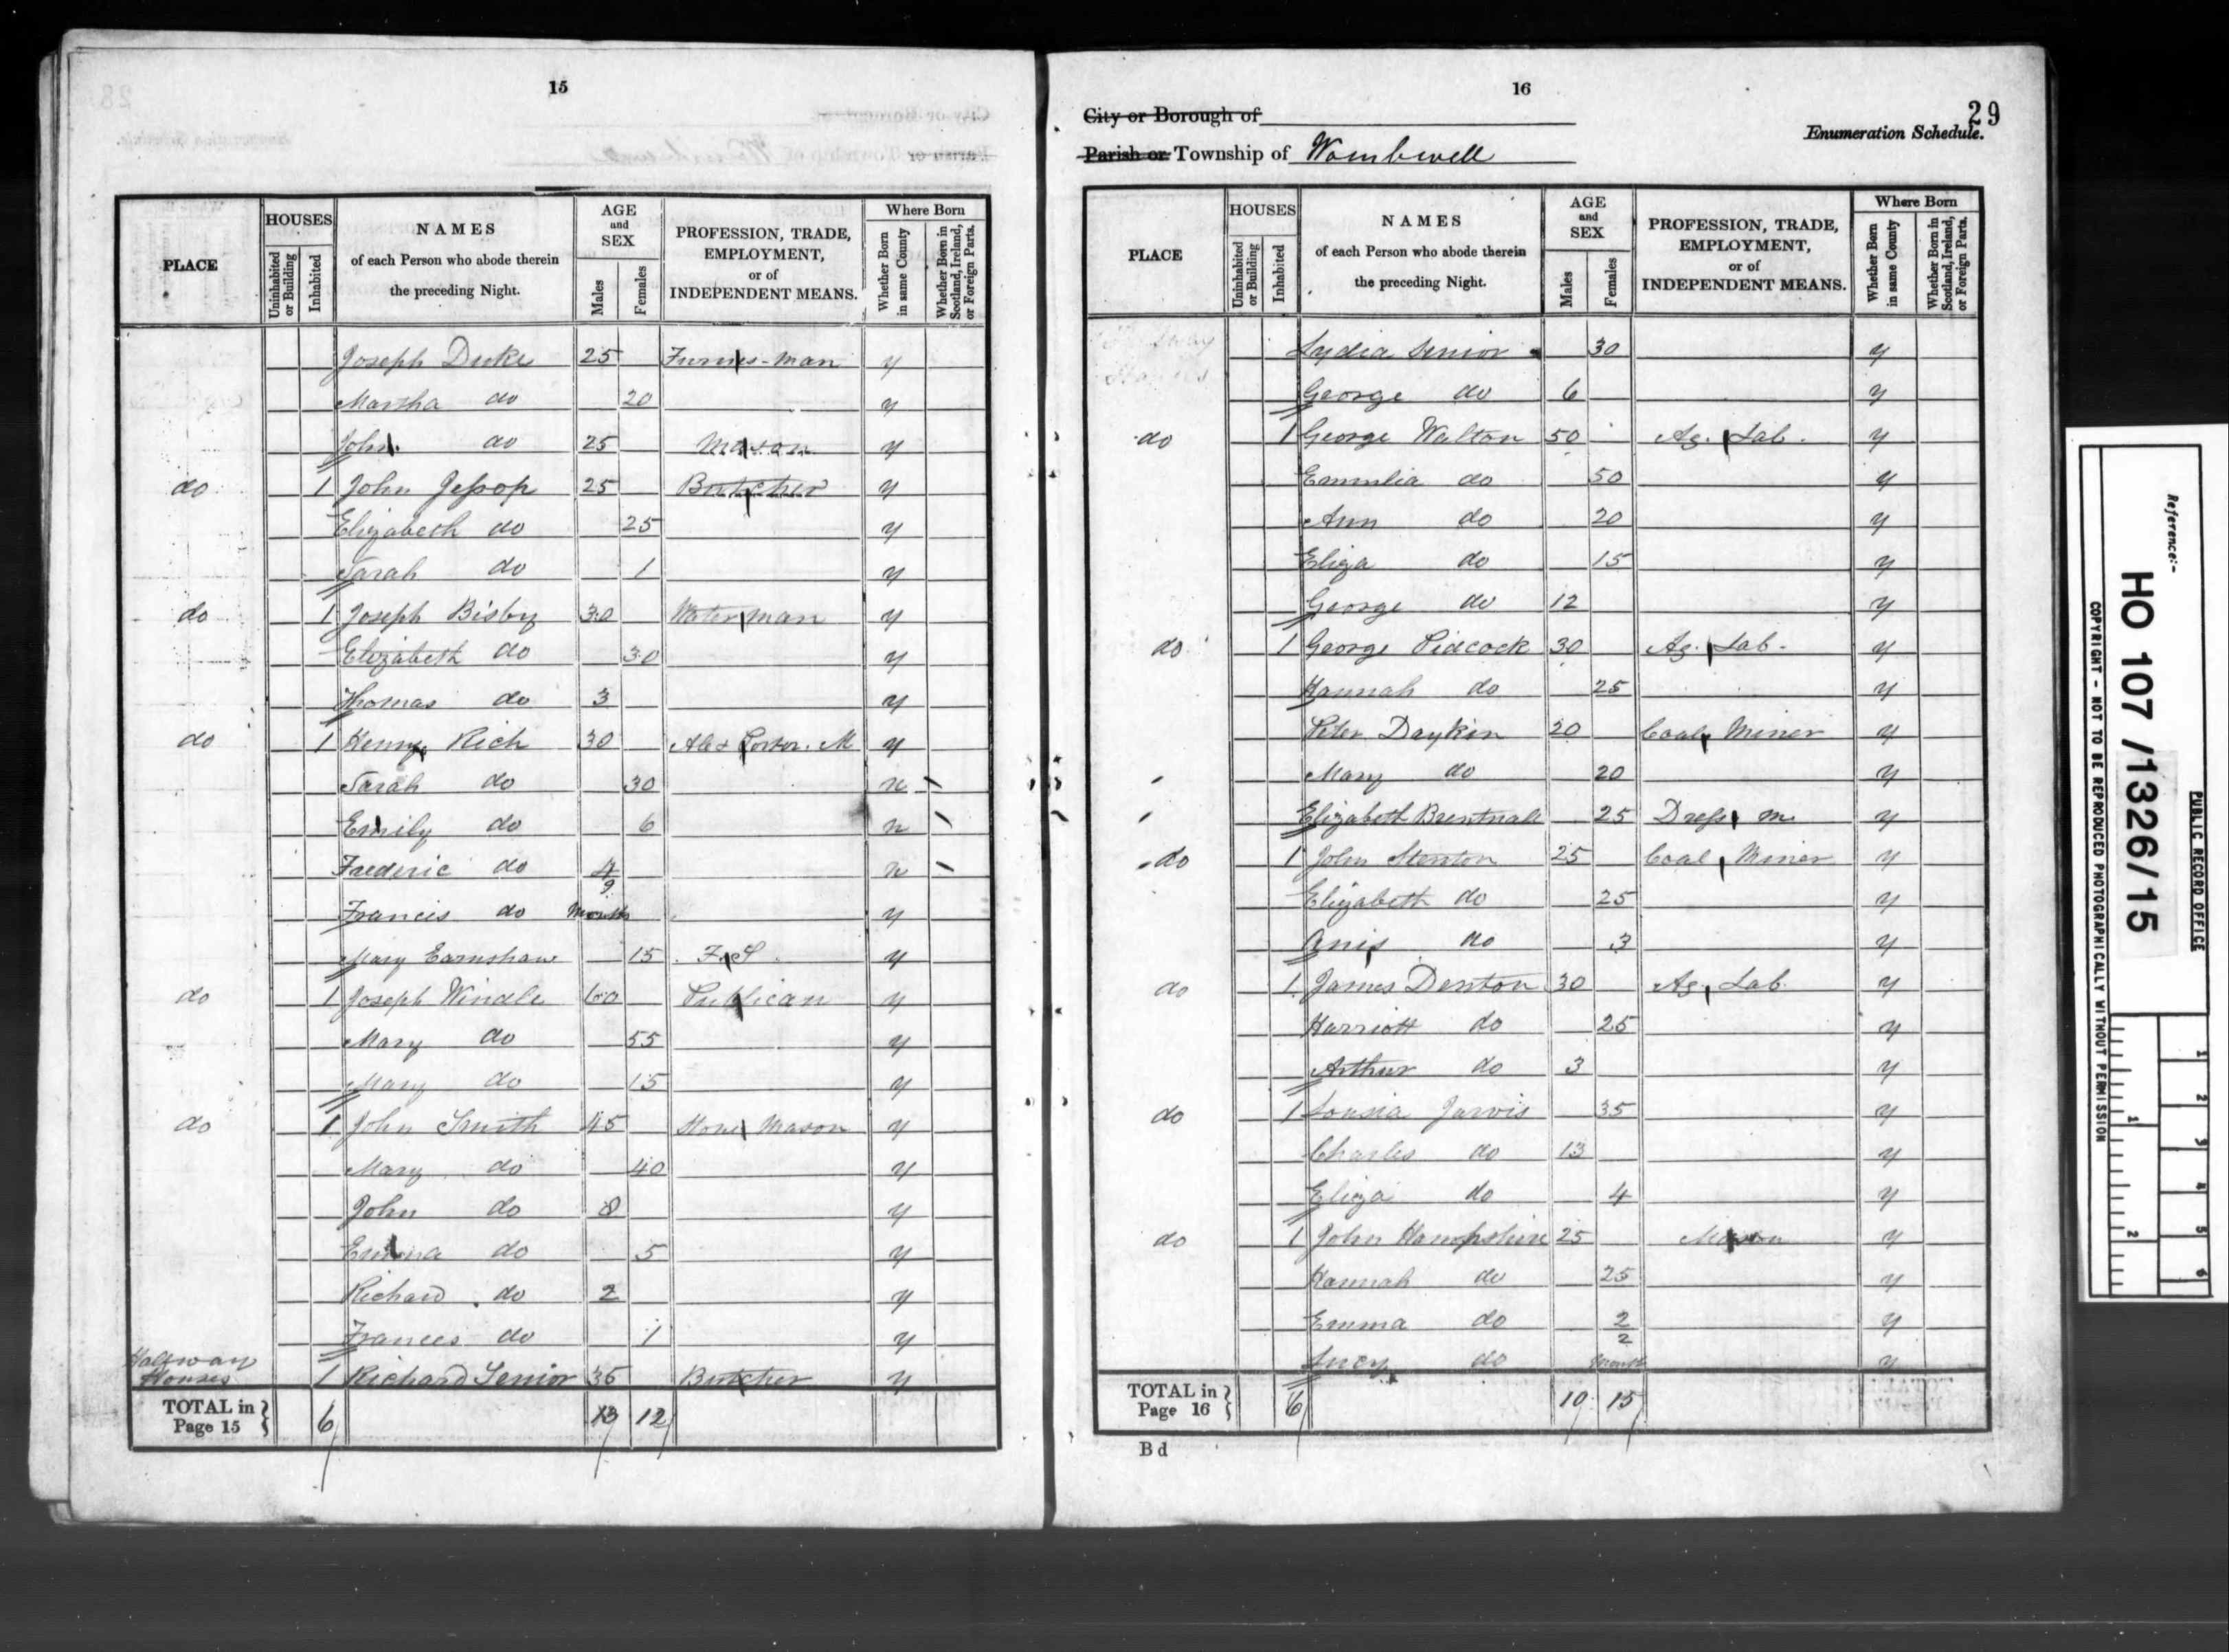 15
PLACE
HOUSES
Uninhabited or Building
Inhabited
NAMES
of each Person who abode therein
the preceding Night.
AGE
and
SEX
Males
Females
PROFESSION, TRADE,
EMPLOYMENT,
or of
INDEPENDENT MEANS.
Where Born
Whether Born in same County
Whether Born in Scotland, Ireland, or Foreign Parts.
Joseph Duke 25 Furnes-man y
Martha do 20 y
John do 25 Mason y
do 1 John Jessop 25 Butcher y
Elizabeth do 25 y
Sarah do 1 y
do 1 Joseph Bisby 30 Waterman y
Elizabeth do 30 y
Thomas do 3 y
do 1 Henry Rich 30 Ale & Porter M y
Sarah do 30 n
Emily do 6 n
Frederic do 4 n
Francis do 9 Months y
Mary Earnshaw 15 F.S. y
do 1 Joseph Windle 60 Publican y
Mary do 55 y
Mary do 15 y
do 1 John Smith 45 Stone Mason y
Mary do 40 y
John do 8 y
Emma do 5 y
Richard do 2 y
Frances do 1 y
Halfway Houses 1 Richard Senior 35 Butcher y
TOTAL in Page 15 } 6 13 12
16
29
City or Borough of
Enumeration Schedule.
Parish or Township of Wombwell
PLACE
HOUSES
Uninhabited or Building
Inhabited
NAMES
of each Person who abode therein
the preceding Night.
AGE
and
SEX
Males
Females
PROFESSION, TRADE,
EMPLOYMENT,
or of
INDEPENDENT MEANS.
Where Born
Whether Born in same County
Whether Born in Scotland, Ireland, or Foreign Parts.
Lydia Senior 30 y
George do 6 y
do 1 George Walton 50 Ag. Lab. y
Emmlia do 50 y
Ann do 20 y
Eliza do 15 y
George do 12 y
do 1 George Pidcock 30 Ag. Lab. y
Hannah do 25 y
Peter Daykin 20 Coal Miner y
Mary do 20 y
Elizabeth Brentnall 25 Dress m. y
do 1 John Stenton 25 Coal Miner y
Elizabeth do 25 y
Anis do 3 y
do 1 James Denton 30 Ag. Lab. y
Harriott do 25 y
Arthur do 3 y
do 1 Lousia Jarvis 35 y
Charles do 13 y
Eliza do 4 y
do 1 John Hampshire 25 Mason y
Hannah do 25 y
Emma do 2 y
Lucy do 2 Months y
TOTAL in Page 16 } 6 10 15
B d
Reference:-
HO 107/1326/15
PUBLIC RECORD OFFICE
COPYRIGHT - NOT TO BE REPRODUCED PHOTOGRAPHICALLY WITHOUT PERMISSION
1 2 3 4 5 6
1 2